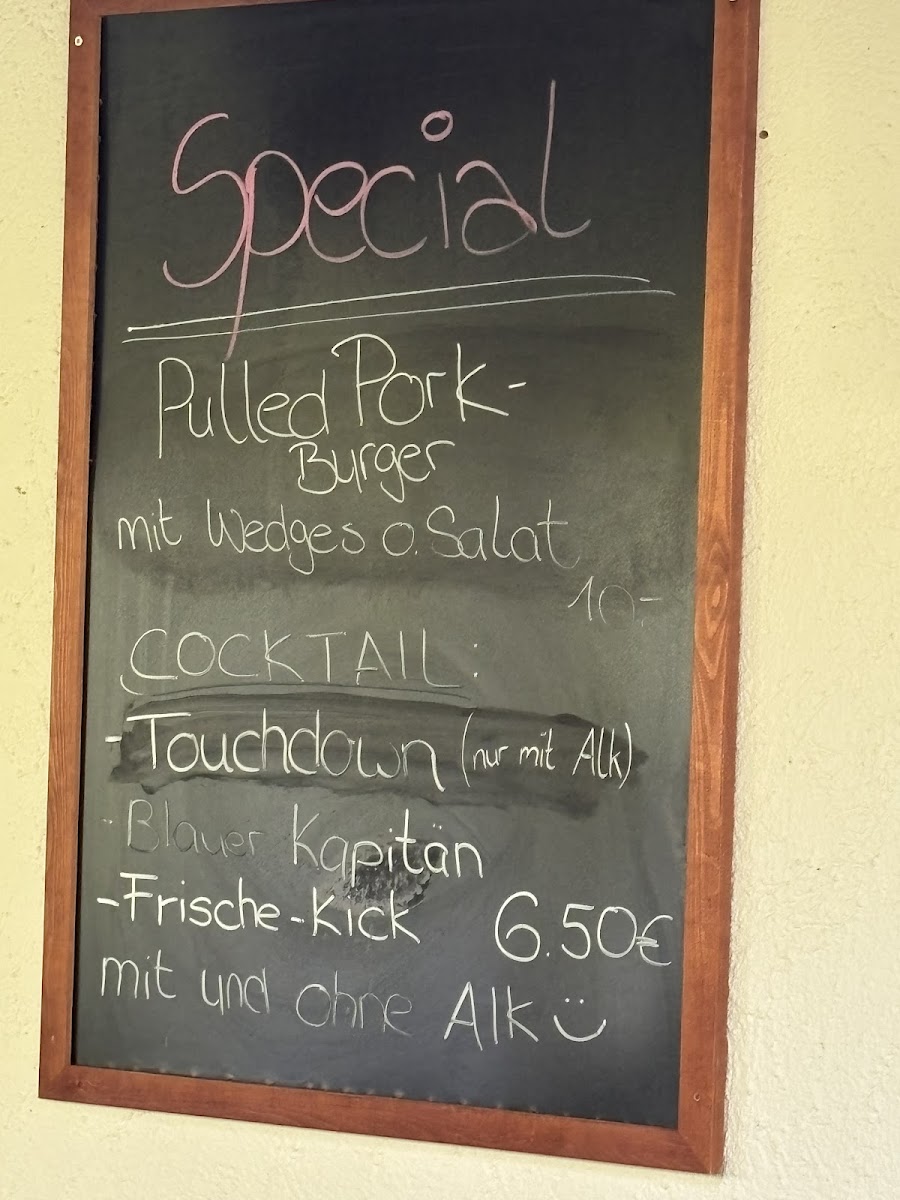 Special
Pulled Pork-
Burger
mit Wedges o. Salat
10,-
COCKTAIL:
- Touchdown (nur mit Alk)
- Blauer Kapitän
- Frische-Kick 6.50€
mit und ohne Alk ü